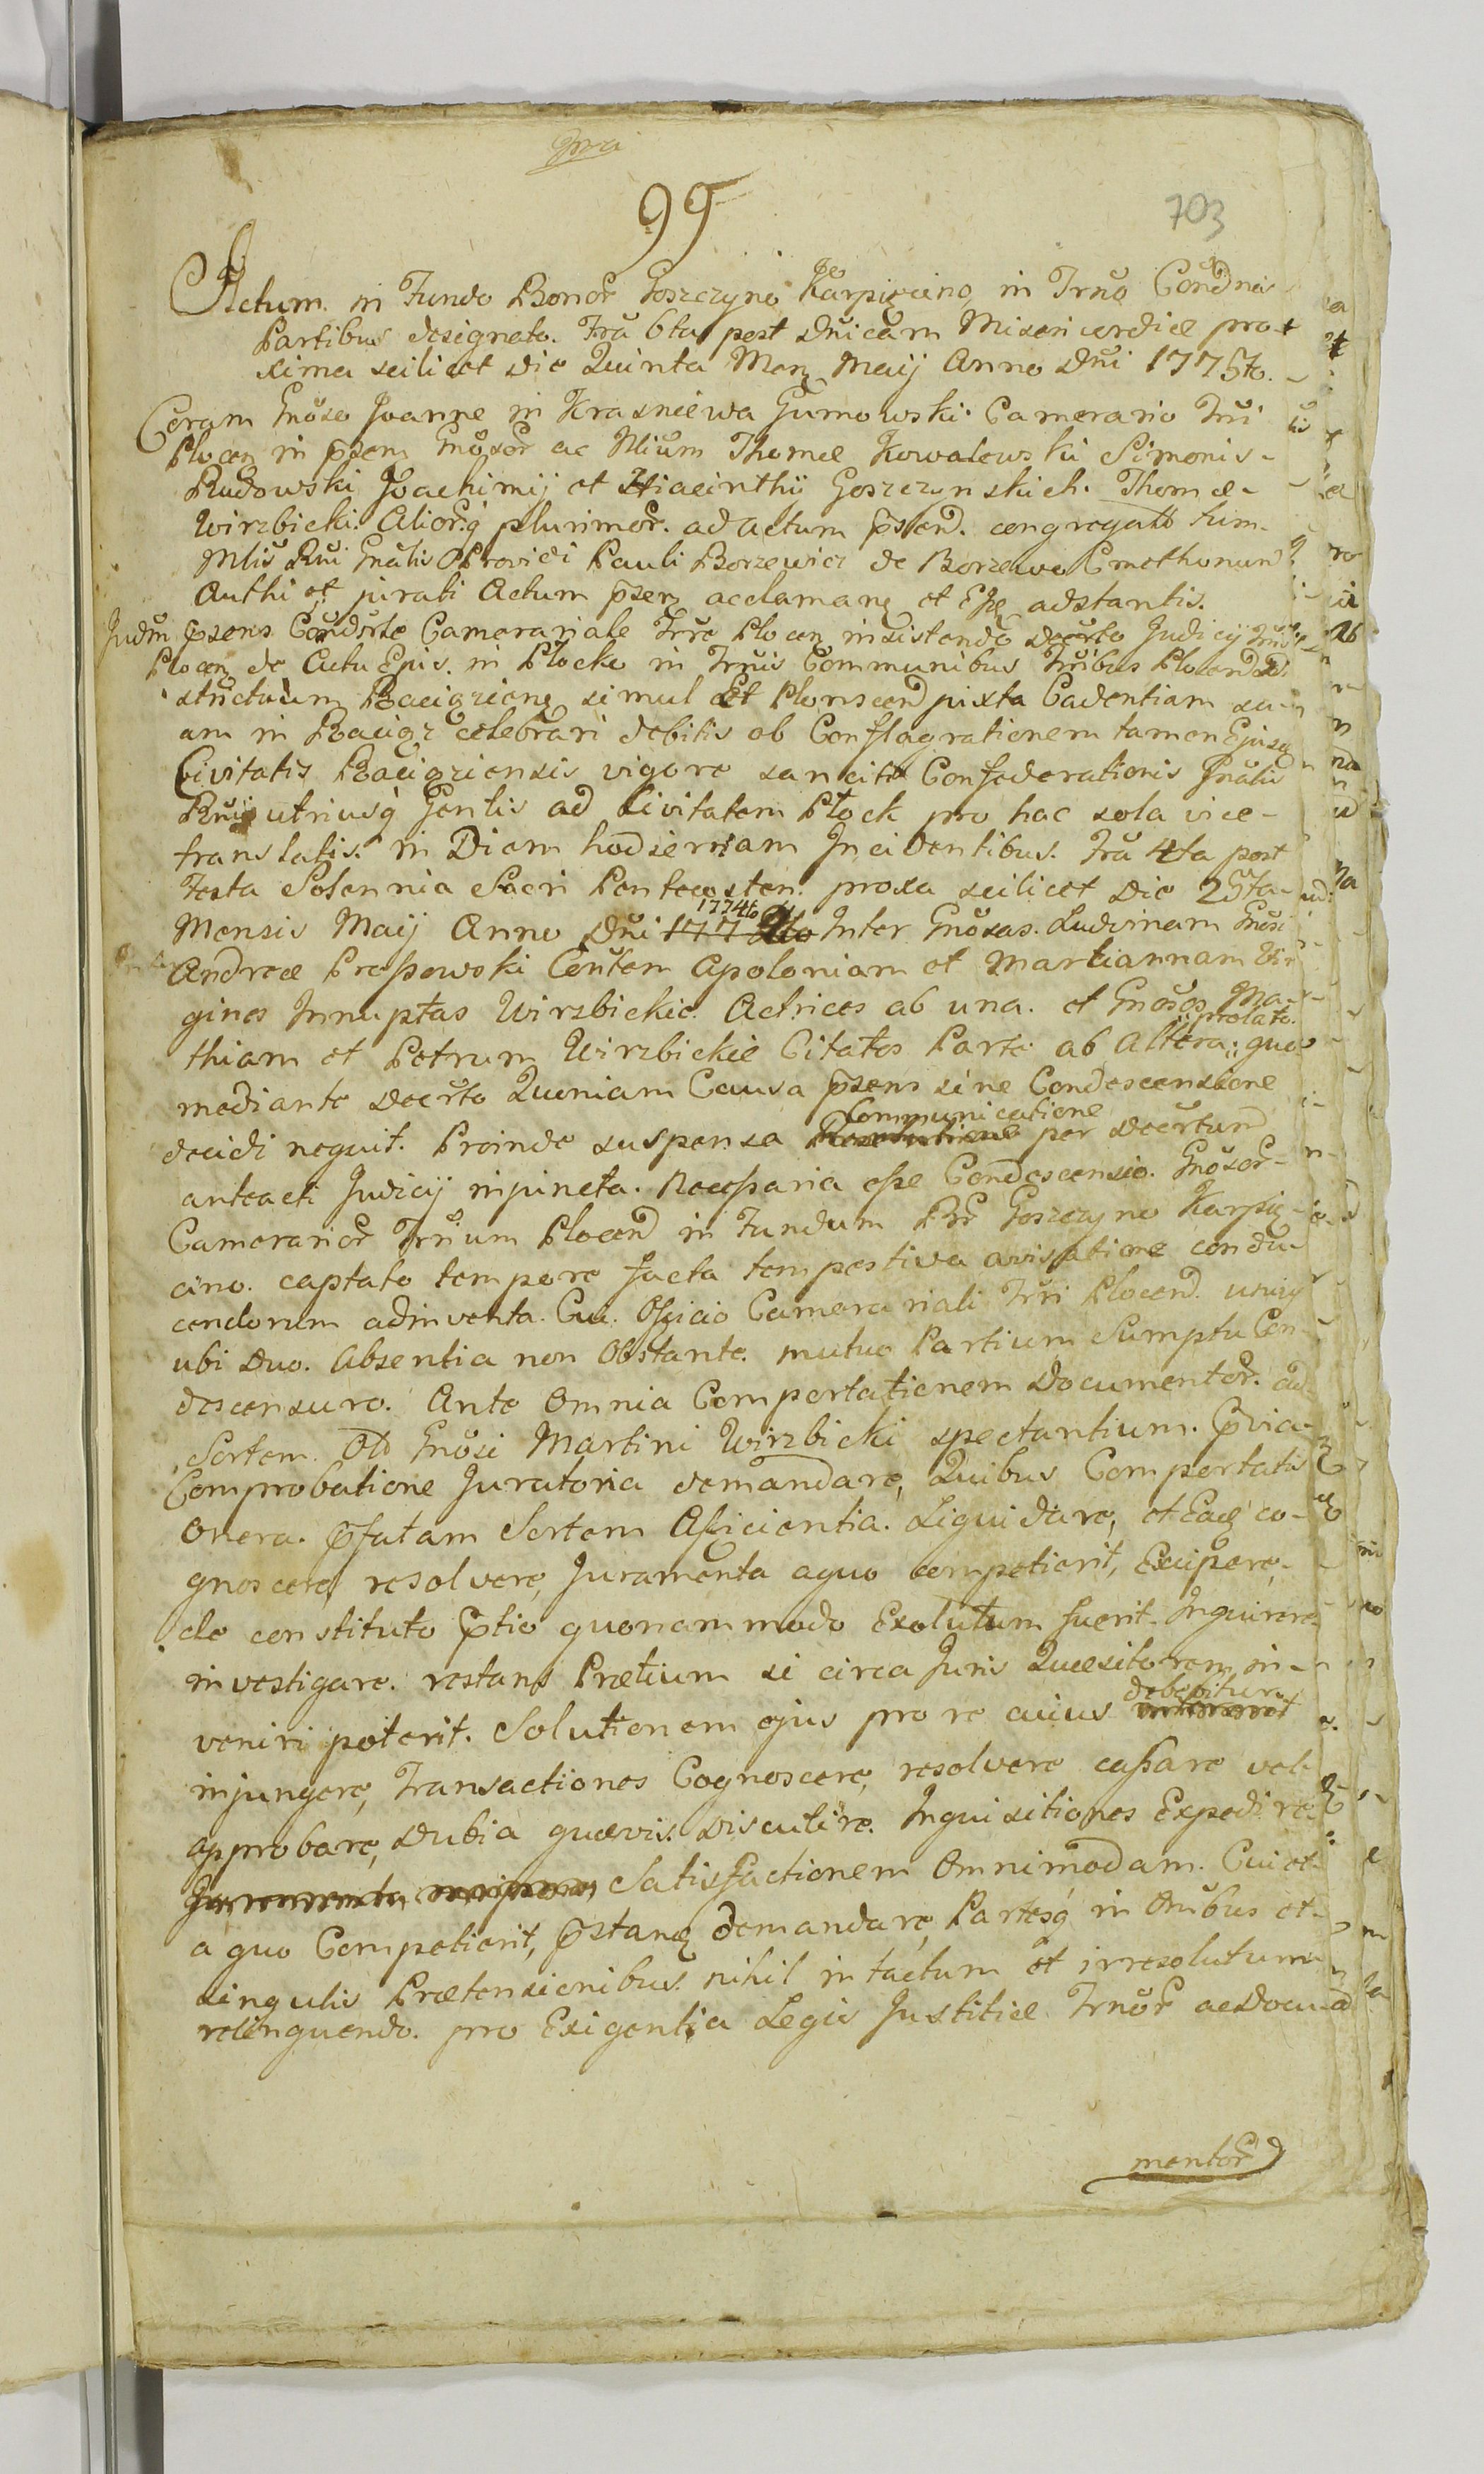 99
703
Actum in Fundo Bonor̃ Goszczyno Karpięcino in Trno Condnis
Partibus designato. Fra 6ta post Dnicam Misericordiæ pro-
xima scilicet die Quinta Menʒ Maij Anno Dni 1775to.
Coram Gnoso Joanne in Krasniewa Gumowski Camerario Trri
Plocen in p̃sen Gnosor̃ ac Nlium Thomæ Kowalewski Simonis
Rudowski Joachimij et Hiacinthij Goszczynskich. Thomæ
Wirzbicki Alior̃q̃ plurimor̃ ad actum p̃sen. congregato tum
Mlis Rni Gnalis Providi Pauli Borzewicz de Borzewo Cmethonum
Authi et jurati Actum p̃senʒ acclamanʒ et Eße adstantis.
Judm p̃sens Condsrle Camerariale Trre Plocen insistendo Decrto Judicij Trris
Plocenʒ de Actu Epis. in Plocko in Trnis Communibus Tribus Plocen Di
strictuum Raciązienʒ simul Et Plonscen juxta Cadentiam su-
am in Raciąż celebrari debitis ob Conflagrationem tamen Ejusdʒ
Civitatis Raciąziensis vigore sanciti Confœderationis Gnalis
Rni utriusq̃ Gentis ad Civitatem Płock pro hac sola vice
translatis. in Diem hodiernam Incidentibus. Fra 4ta post
Festa Solennia Sacri Pentecosten. proxa scilicet die 25ta
Mensis Maij Anno Dni 1774to Inter Gnosas. Ludvinam Gnosi
Andreæ Praßowski Contem Apoloniam et Martiannam Vir
gines Innuptas Wirzbickie Actrices ab una. et Gnosos Ma-
thiam et Petrum Wirzbickie Citatos Parte ab Altera: prolato. quo
mediante Decrto Quoniam Causa p̃sens sine Condescensione
decidi nequit. Proinde suspensa Communicatione per Decrtum
anteacti Judicij injuncta. Necessaria eße Condescensio. Gnosor̃
Camerarior̃ Trrium Plocen in Fundum Br̃ Goszczyno Karpię-
cino. captato tempore facta tempestiva avisatione condu
cendorum adinventa. Cui. Officio Camerariali Trri Plocen. uniq̃
ubi Duo. Absentia non Obstante. mutuo Partium Sumptu Con-
descensuro. Ante Omnia Comportationem Documentor̃. ad
Sortem Oto Gnosi Martini Wirzbicki spectantium. P̃via
Comprobatione Juratoria demandare, Quibus Comportatis
Onera. p̃fatam Sortem Afficientia. Liquidare, et Eadʒ co-
gnoscere, resolvere, Juramenta aquo competierit, Excipere,
de constituto p̃tio quonam modo Exolutum fuerit. Inquirere
investigare. restans Prætium si circa Juris Quæsitorem in-
veniri poterit. Solutionem ejus pro re cuius debebitur.
injungere, Transactiones Cognoscere, resolvere caßare vel
approbare, Dubia quævis. Discutire. Inquisitiones Expedire
Satisfactionem Omnimodam. Cui et
a quo Competierit, p̃stanʒ demandare, Partesq̃ in Omibus et
singulis Prætensionibus. nihil intactum et irresolutum
relinquendo. pro Exigentia Legis Justitiæ Trnor̃ ac Docu
mentor̃